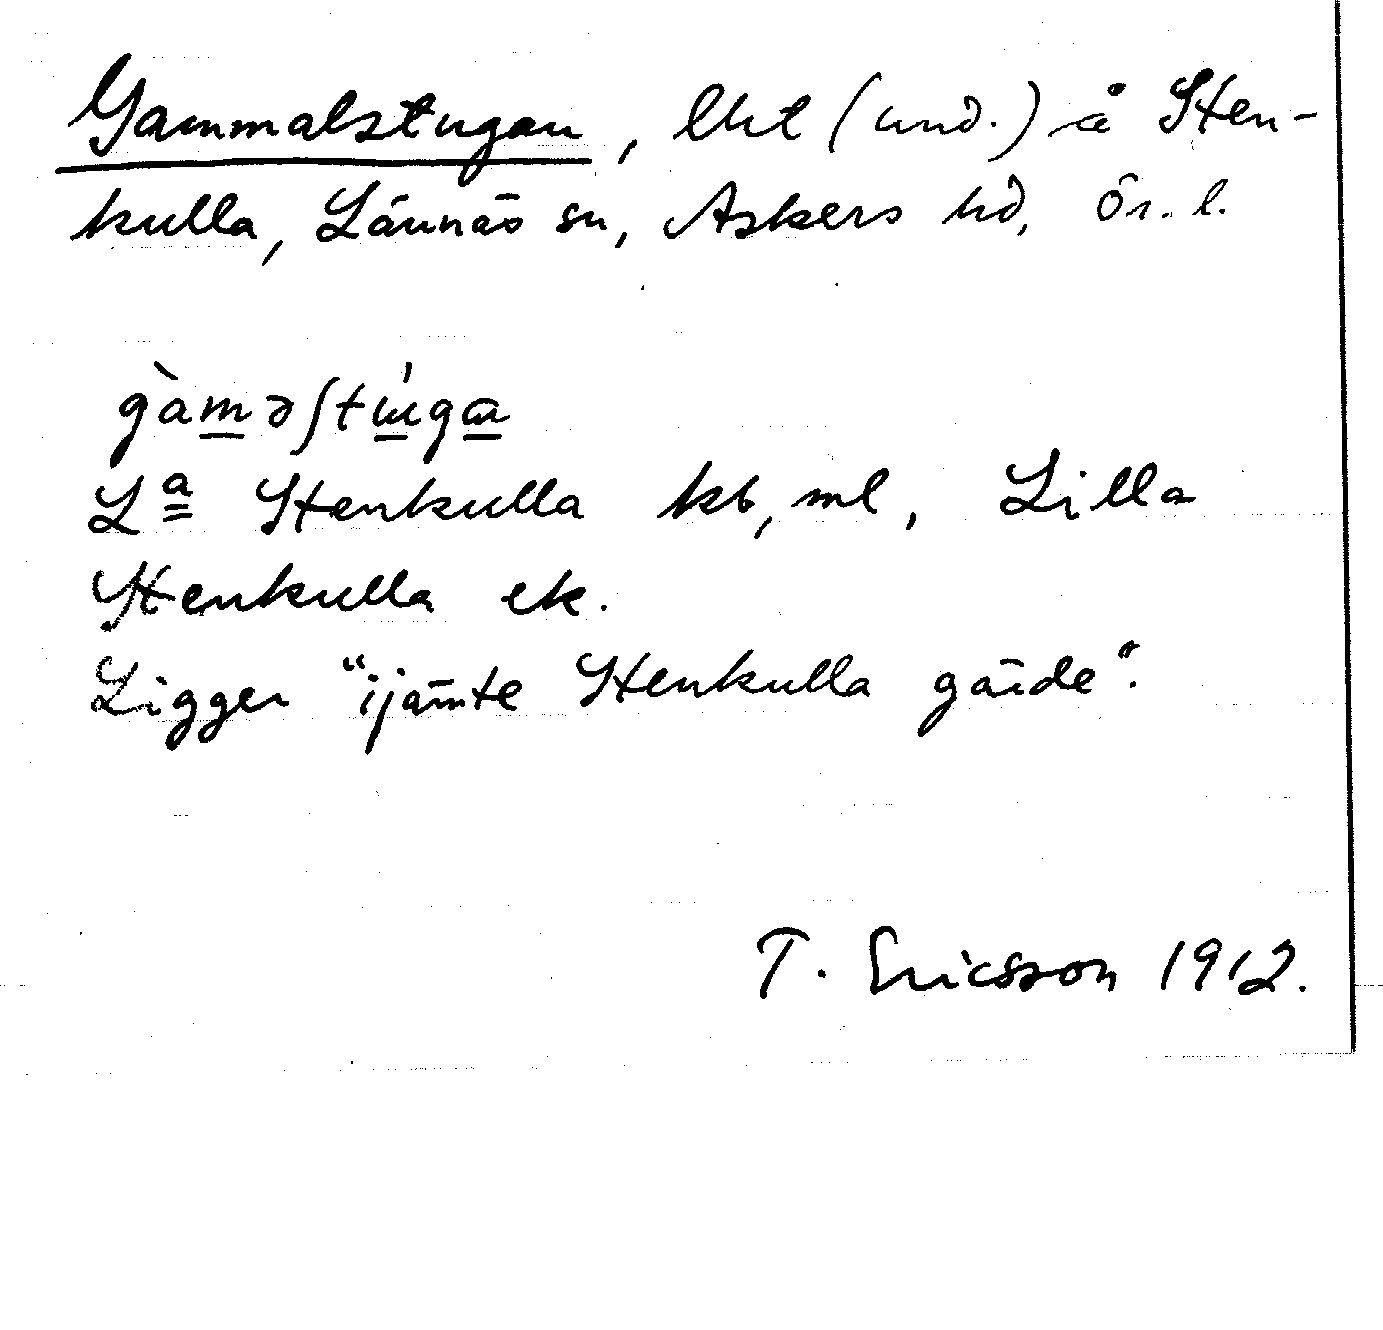 Gammalstugan, lht (und.) å Sten-
kulla, Lännäs sn, Askers hd, Ör. l.
gàməʃtùgɑ
La Stenkulla kb, ml, Lilla
Stenkulla ek.
Ligger "ijämte Stenkulla gärde".
T. Ericsson 1912.